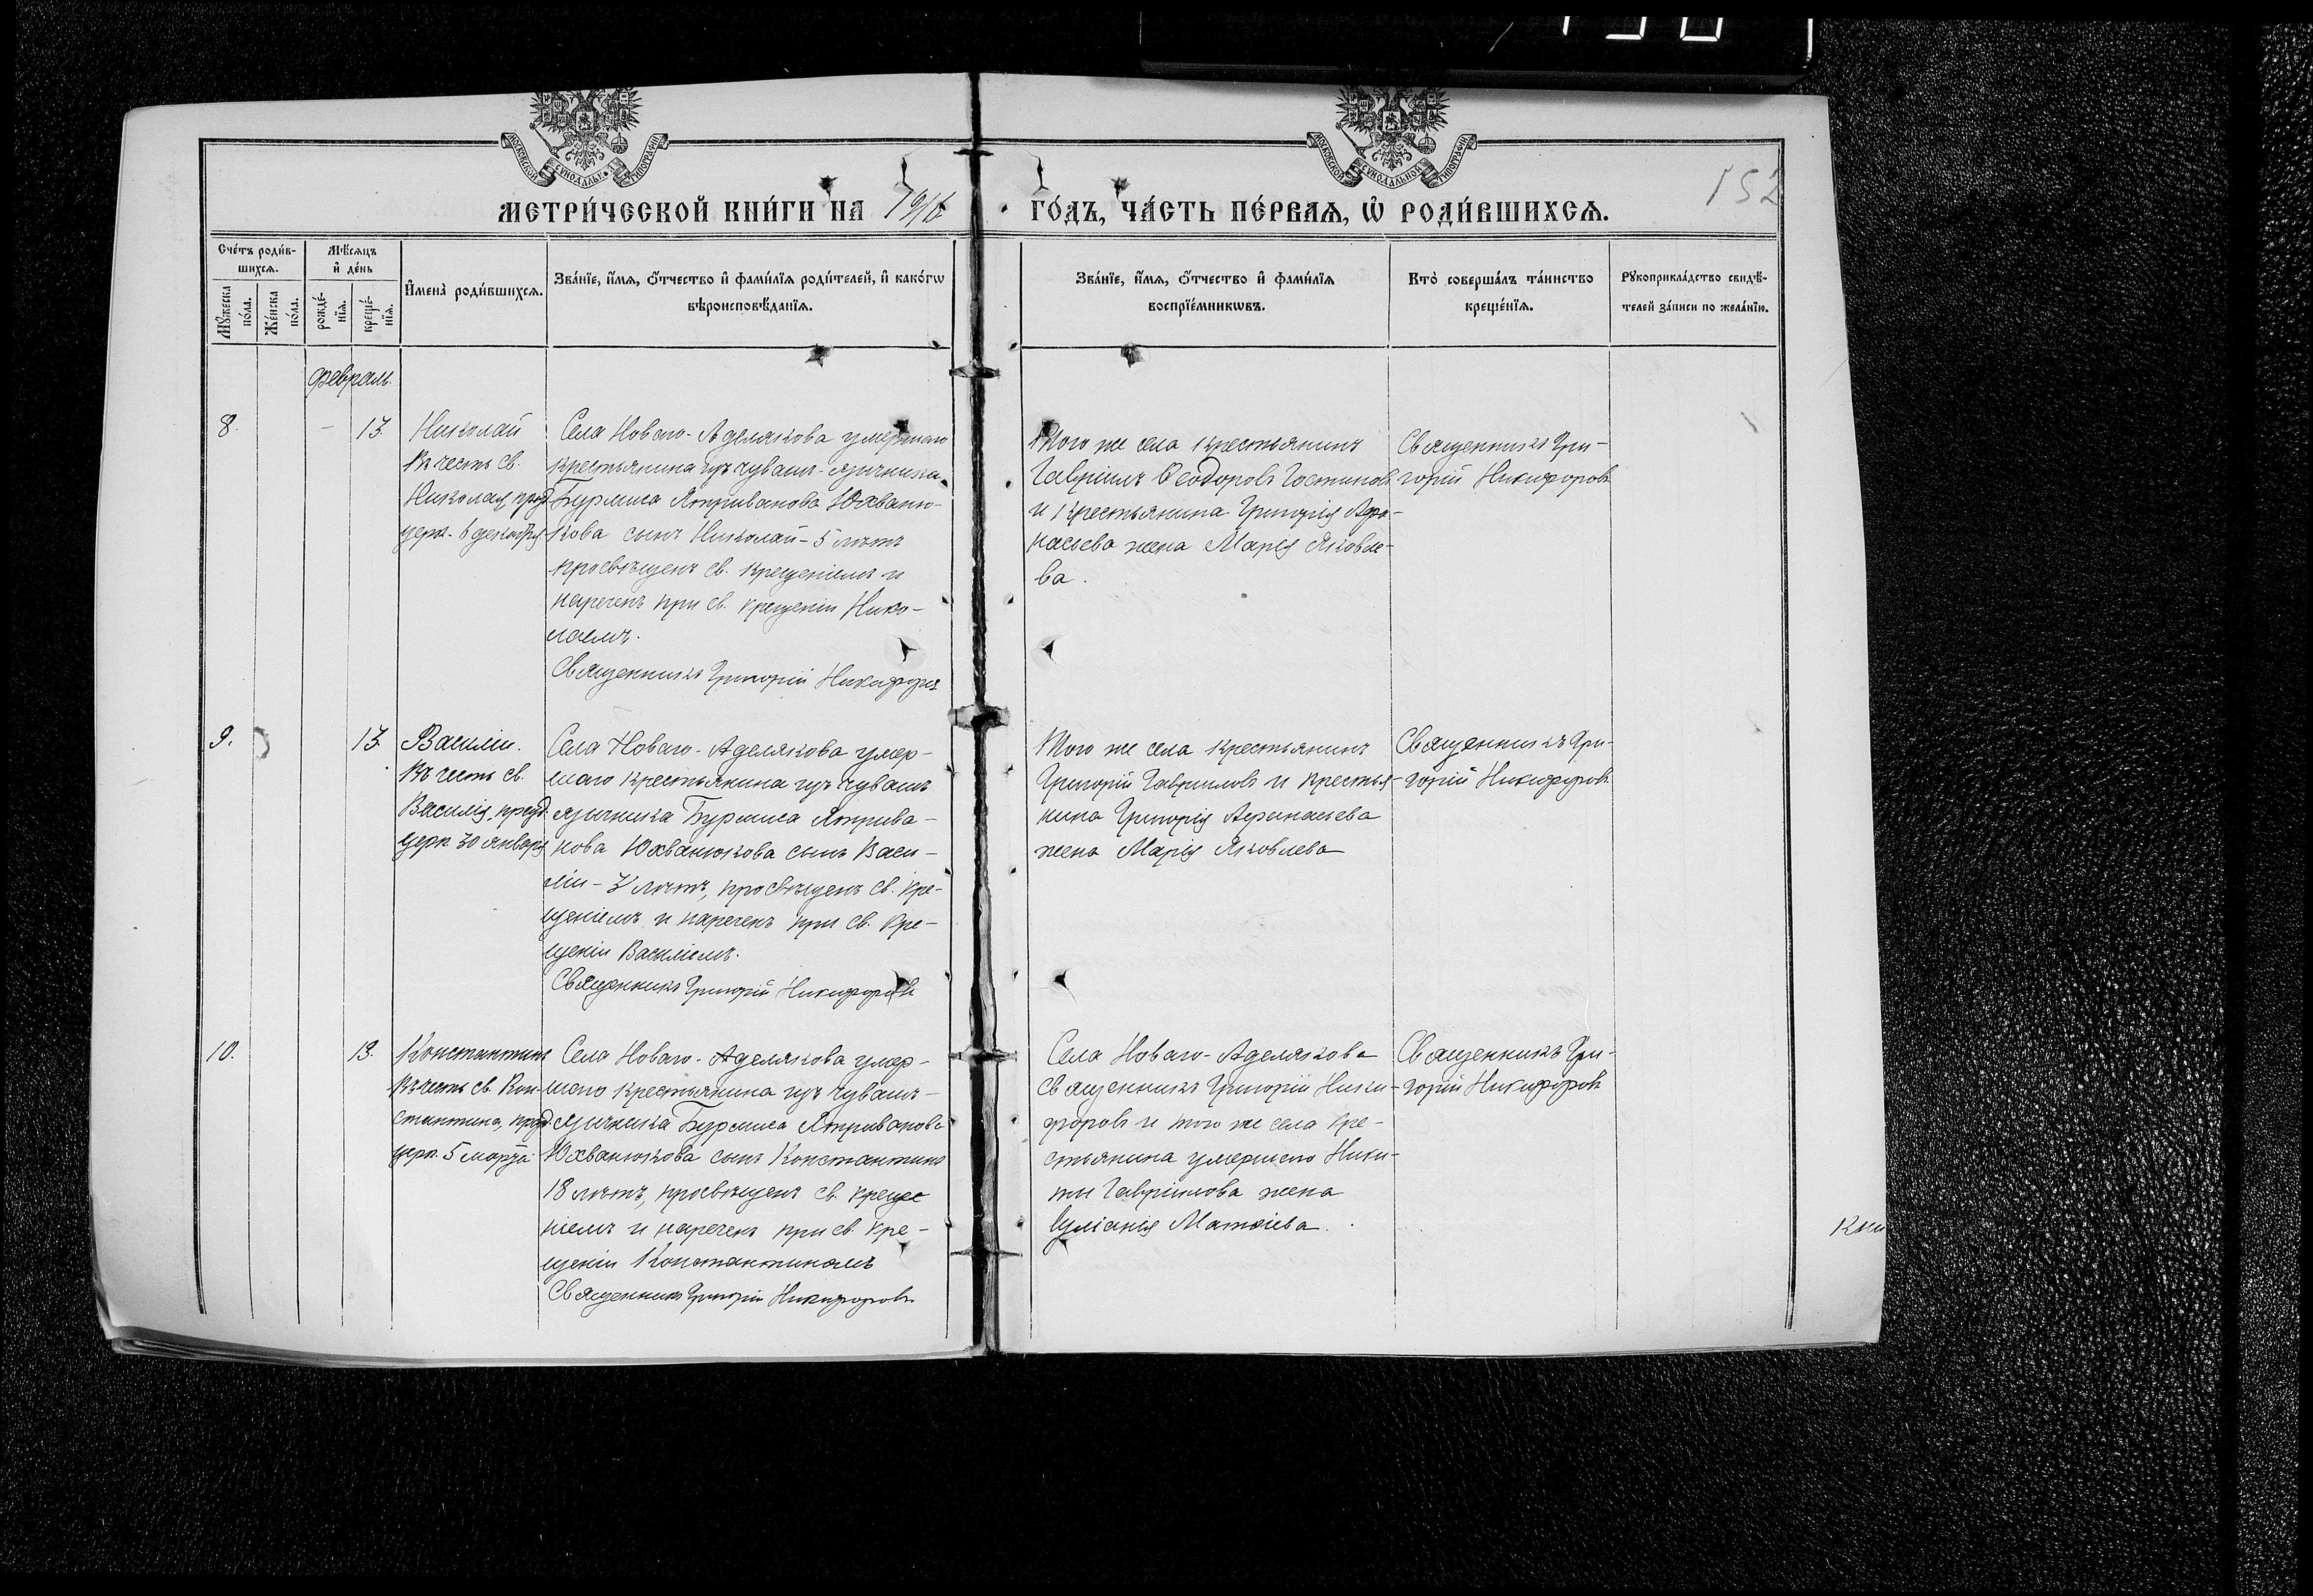 МОСКОВСКОЙ СѴНОДАЛЬН. ТИПОГРАФІИ
МОСКОВСКОЙ СѴНОДАЛЬНОЙ ТИПОГРАФІИ
152
МЕТРИ́ЧЕСКОЙ КНИ́ГИ НА
ГО́ДЪ, ЧА́СТЬ ПЕ́РВАѦ, Ѡ҆ РОДИ́ВШИХСѦ.
Сче́тъ роди́в-
шихсѧ.
Мѣ́сѧцъ
и҆ де́нь
Мꙋ́жеска
по́ла.
Же́нска
по́ла.
рожде́-
нїѧ.
креще́-
нїѧ.
И҆мена̀ роди́вшихсѧ.
Зва́нїе, и҆́мѧ, ѻ҆́тчество и҆ фами́лїѧ роди́телей, и҆ како́гѡ
вѣроисповѣ́данїѧ.
Зва́нїе, и҆́мѧ, ѻ҆́тчество и҆ фами́лїѧ
воспрїе́мникѡвъ.
Кто̀ соверша́лъ та́инство
креще́нїѧ.
Рꙋкоприкла́дство свидѣ́-
телей за́писи по жела́нїю.
Февраль.
8.
—
13.
Николай
Въ честь св.
Николая, празд.
церк. 6 декабря
Села Новаго-Аделякова умершаго
крестьянина изъ чувашъ-язычника
Бурмиса Ятриванова Юхваню-
кова сынъ Николай - 5 лѣтъ
просвѣщенъ св. крещеніемъ и
нареченъ при св. крещеніи Нико-
лаемъ.
Священникъ Григорій Никифоровъ
Того же села крестьянинъ
Гавріилъ Ѳеодоровъ Гостиновъ
и крестьянина Григорія Афа-
насьева жена Марія Яковле-
ва.
Священникъ Гри-
горій Никифоровъ
9.
13.
Василій.
Въ честь св.
Василія, празд.
церк 30 января
Села Новаго-Аделякова умер-
шаго крестьянина изъ чувашъ
язычника Бурмиса Ятрива-
нова Юхванюкова сынъ Васи-
лій - 3 лѣтъ, просвѣщенъ св. кре-
щеніемъ и нареченъ при св. кре-
щеніи Василіемъ.
Священникъ Григорій Никифоровъ
Того же села крестьянинъ
Григорій Гавриловъ и крестья-
нина Григорія Афанасьева
жена Марія Яковлева
Священникъ Гри-
горій Никифоровъ
10.
13.
Константинъ
Въ честь св. Кон-
стантина, празд.
церк. 5 марта
Села Новаго-Аделякова умер-
шаго крестьянина изъ чувашъ-
язычника Бурмиса Ятриванова
Юхванюкова сынъ Константинъ
18 лѣтъ, просвѣщенъ св. креще
ніемъ и нареченъ при св. кре-
щеніи Константиномъ
Священникъ Григорій Никифоровъ.
Села Новаго-Аделякова
священникъ Григорій Ники-
форовъ и того же села кре-
стьянина умершаго Ники-
ты Гаврилова жена
Іуліанія Матѳіева.
Священникъ Гри-
горій Никифоровъ